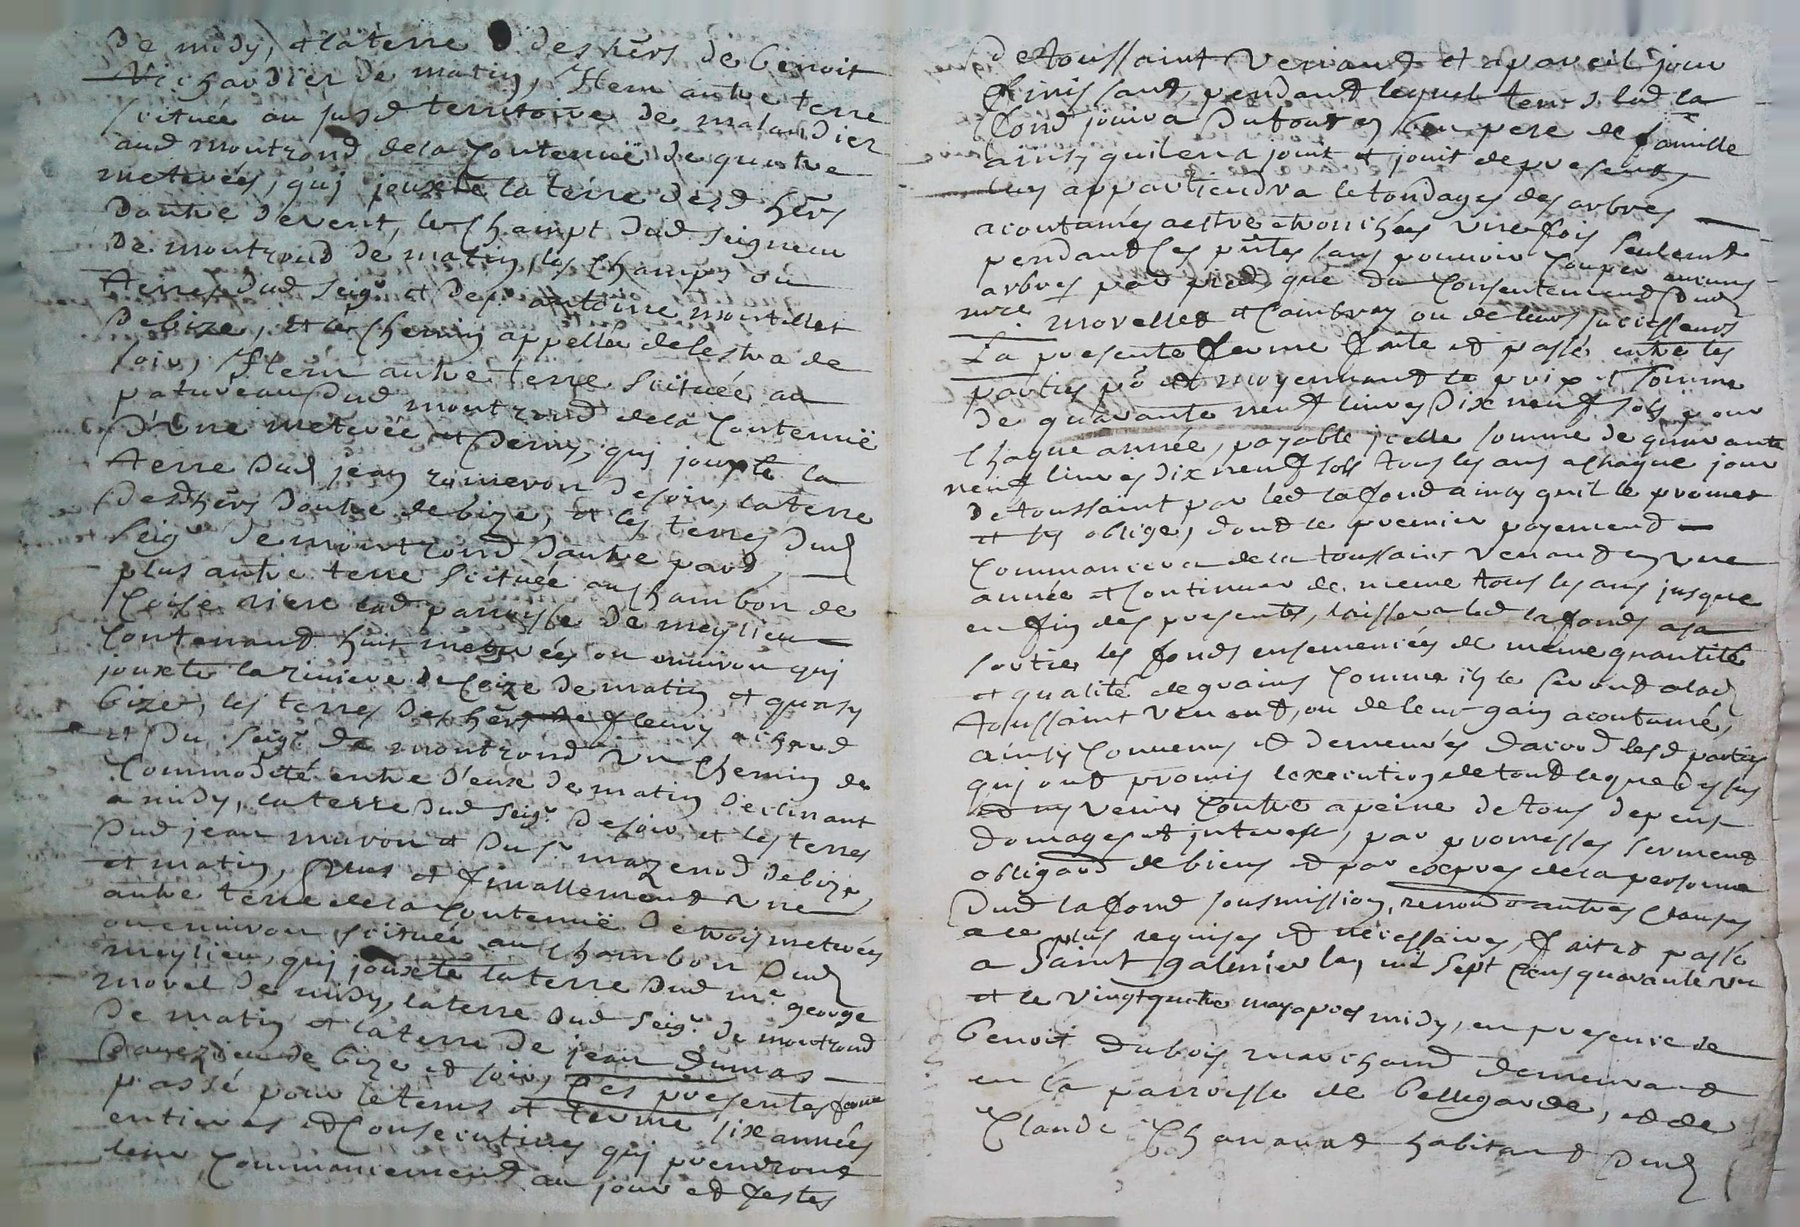 De midy, et la terre des hers de Benoit
Vichardier de matin, Item autre terre
scituée au susd territoire de malandier
aud montrond de la Contenuë de quatre
meterées, quj jouxte la terre desd hers
Dautre devent, le Champt dud seigneur
De montrond de matin, les Champs ou
terres dud seigr et de sr antoine montellet
De bize, et le Chemin appellée delestra de
soir, Item autre terre scituée au
patureau dud montrond de la Contenuë
D'une meterée et Demy, quj jouxte la
terre dud jean rimeron de soir, la terre
Desd hers Dautre de bize, et les terres dud
seigr De montrond Dautre part,
plus autre terre scituée au Chambon de
Coise riere lad parroisse De meylieu
Contenant huit meterées ou environ quj
jouxte la riviere de Coize de matin et quasy
bize, les terres des hers de fleury achard
et Du seigr de montrond un Chemin de
Commodité entre D'eux De matin Declinant
a midy, la terre dud seigr De soir et les terres
Dud jean mavon et Du sr mazenod De bize
et matin, Plus et finallement une
autre terre de la Contenuë De trois meterées
ou environ scituée au Chambon Dud
meylieu, quj jouxte la terre dud mr george
morel De midy, la terre dud seigr. de montrond
De matin et la terre de jean Dumas
Davezieu de bize et soir, Ces presentes ferme
passé pour le tems et terme six années
entieres et Consecutives quj prendront
leur Commancement au jour et festes
De toussaint Venant et a pareil jour
finissant, pendant lequel tems led la
fond jouira Dufour en bon pere de famille
ainsy quil en a jouit et jouit de present
luy appartiendra le tondages des arbres
acoutumés aestre etronchés une fois seulemt
pendant ces pntes sans pouvoir Couper aucuns
arbres par pied que du Consentement dud
mres morellet et Cambray ou de leurs successeurs
La presente ferme faite et passée entre les
parties po et moyennant le prix et somme
De quarante neuf livres Dix neuf sols pour
Chaque année, payable jcelle somme de quarante
neuf livres dix neuf sols tous les ans a chaque jour
De toussaint par led lafond ainsy quil le promet
et sy oblige, dont le premier payement
Commancera de la toussaint venant en une
année et Continuer de meme tous les ans jusque
en fin des presentes, laissera led lafonds a sa
sortie les fonds ensemencées de même quantité
et qualité de grains Comme ils le seront alad
toussaint venant, ou de leur gain acoutumé,
ainsy Convenus et demeurés dacord lesd parties
quj ont promis lexecution de tout le que dessus
et ny venir Contre a peine de tous depens
domages et jnterest, par promesses serment
obligaon de biens et par expres de la personne
Dud lafond sousmission, renonon et autres Clauses
a ce plus requises et nécessaires, fait et passé
a Saint galmier la, mil sept Cens quarante un
et le vingtquatre may apres midy, en presence de
benoit dubois marchand demeurant
en la parroisse de bellegarde, et de
Claude Chanavat habitant Dud